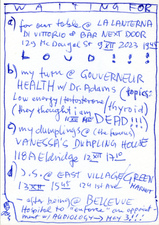 WAITING FOR
a) for our table @ LA LANTERNA
DI VITTORIO @ BAR NEXT DOOR
129 McDougal St 9 XII 2023 1945
LOUD!!!
b) my turn @ GOUVERNEUR
HEALTH w/ Dr. Adams (topics:
Low energy/testosterone/thyroid)
(they thought i am
DEAD!!!)
c) my dumplings @ (the famous)
VANESSA'S DUMPLING HOUSE
118A Eldridge 12 XII 1710
d) J.S. @ EAST VILLAGE GREEN
13 XII 1545 MARKET
– after being @ BELLEVUE
Hospital to "enforce" an appoint
ment w/ AUDIOLOGY → MAY 3!!!